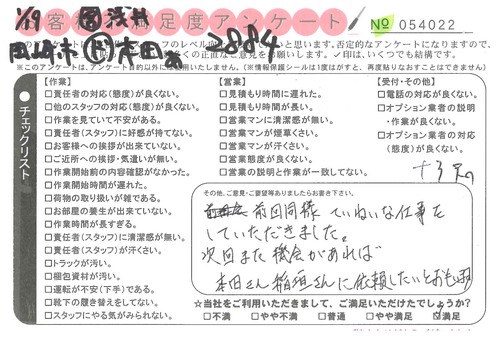 お客様満足度アンケート
1/19
No 054022
岡崎市
2884
いと思います。否定的なアンケートになりますので、
くの正直なご意見をお願いします。✓印は、いくつでも結構です。
※このアンケートは、アンケート目的以外には使用いたしません。(※情報保護シールは1度はがすと、再度貼りなおすことはできません)
チェックリスト
【作業】
□責任者の対応(態度)が良くない。
□他のスタッフの対応(態度)が良くない。
□作業を見ていて不安がある。
□責任者(スタッフ)に好感が持てない。
□お客様への挨拶が出来ていない。
□ご近所への挨拶・気遣いが無い。
□作業開始前の内容確認がなかった。
□作業開始時間が遅れた。
□荷物の取り扱いが雑である。
□お部屋の養生が出来ていない。
□作業時間が長すぎる。
□責任者(スタッフ)に清潔感が無い。
□責任者(スタッフ)が汗くさい。
□トラックが汚い。
□梱包資材が汚い。
□運転が不安(下手)である。
□靴下の履き替えをしてない。
□スタッフにやる気がみられない。
【営業】
□見積もり時間に遅れた。
□見積もり時間が長い。
□営業マンに清潔感が無い。
□営業マンが煙草くさい。
□営業マンが汗くさい。
□営業態度が良くない。
□営業の説明と作業が一致してない。
【受付・その他】
□電話の対応が良くない。
□オプション業者の説明
・作業が良くない。
□オプション業者の対応
(態度)が良くない。
その他、ご意見・ご要望等ありましたらお書き下さい。
前回同様 ていねいな仕事を
していただきました。
次回また機会があれば
本田さん 稲垣さんに依頼したいとおもいます
☆当社をご利用いただきまして、ご満足いただけたでしょうか?
□不満 □やや不満 □普通 □やや満足 ☑満足